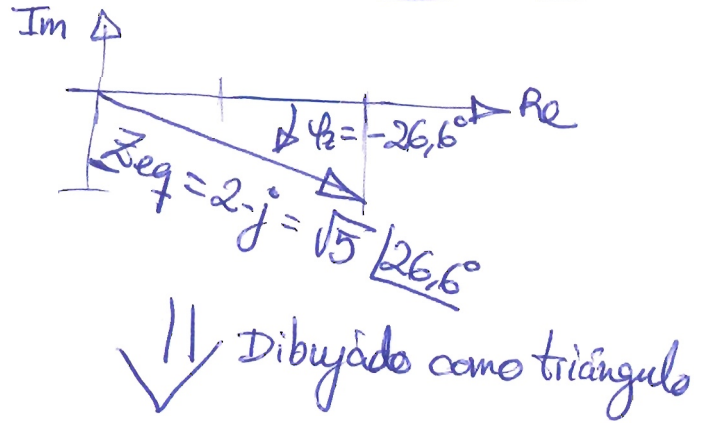 Im
Re
φz = -26,6°
Zeq = 2-j = √5 ∠26,6°
Dibujádo como triángulo